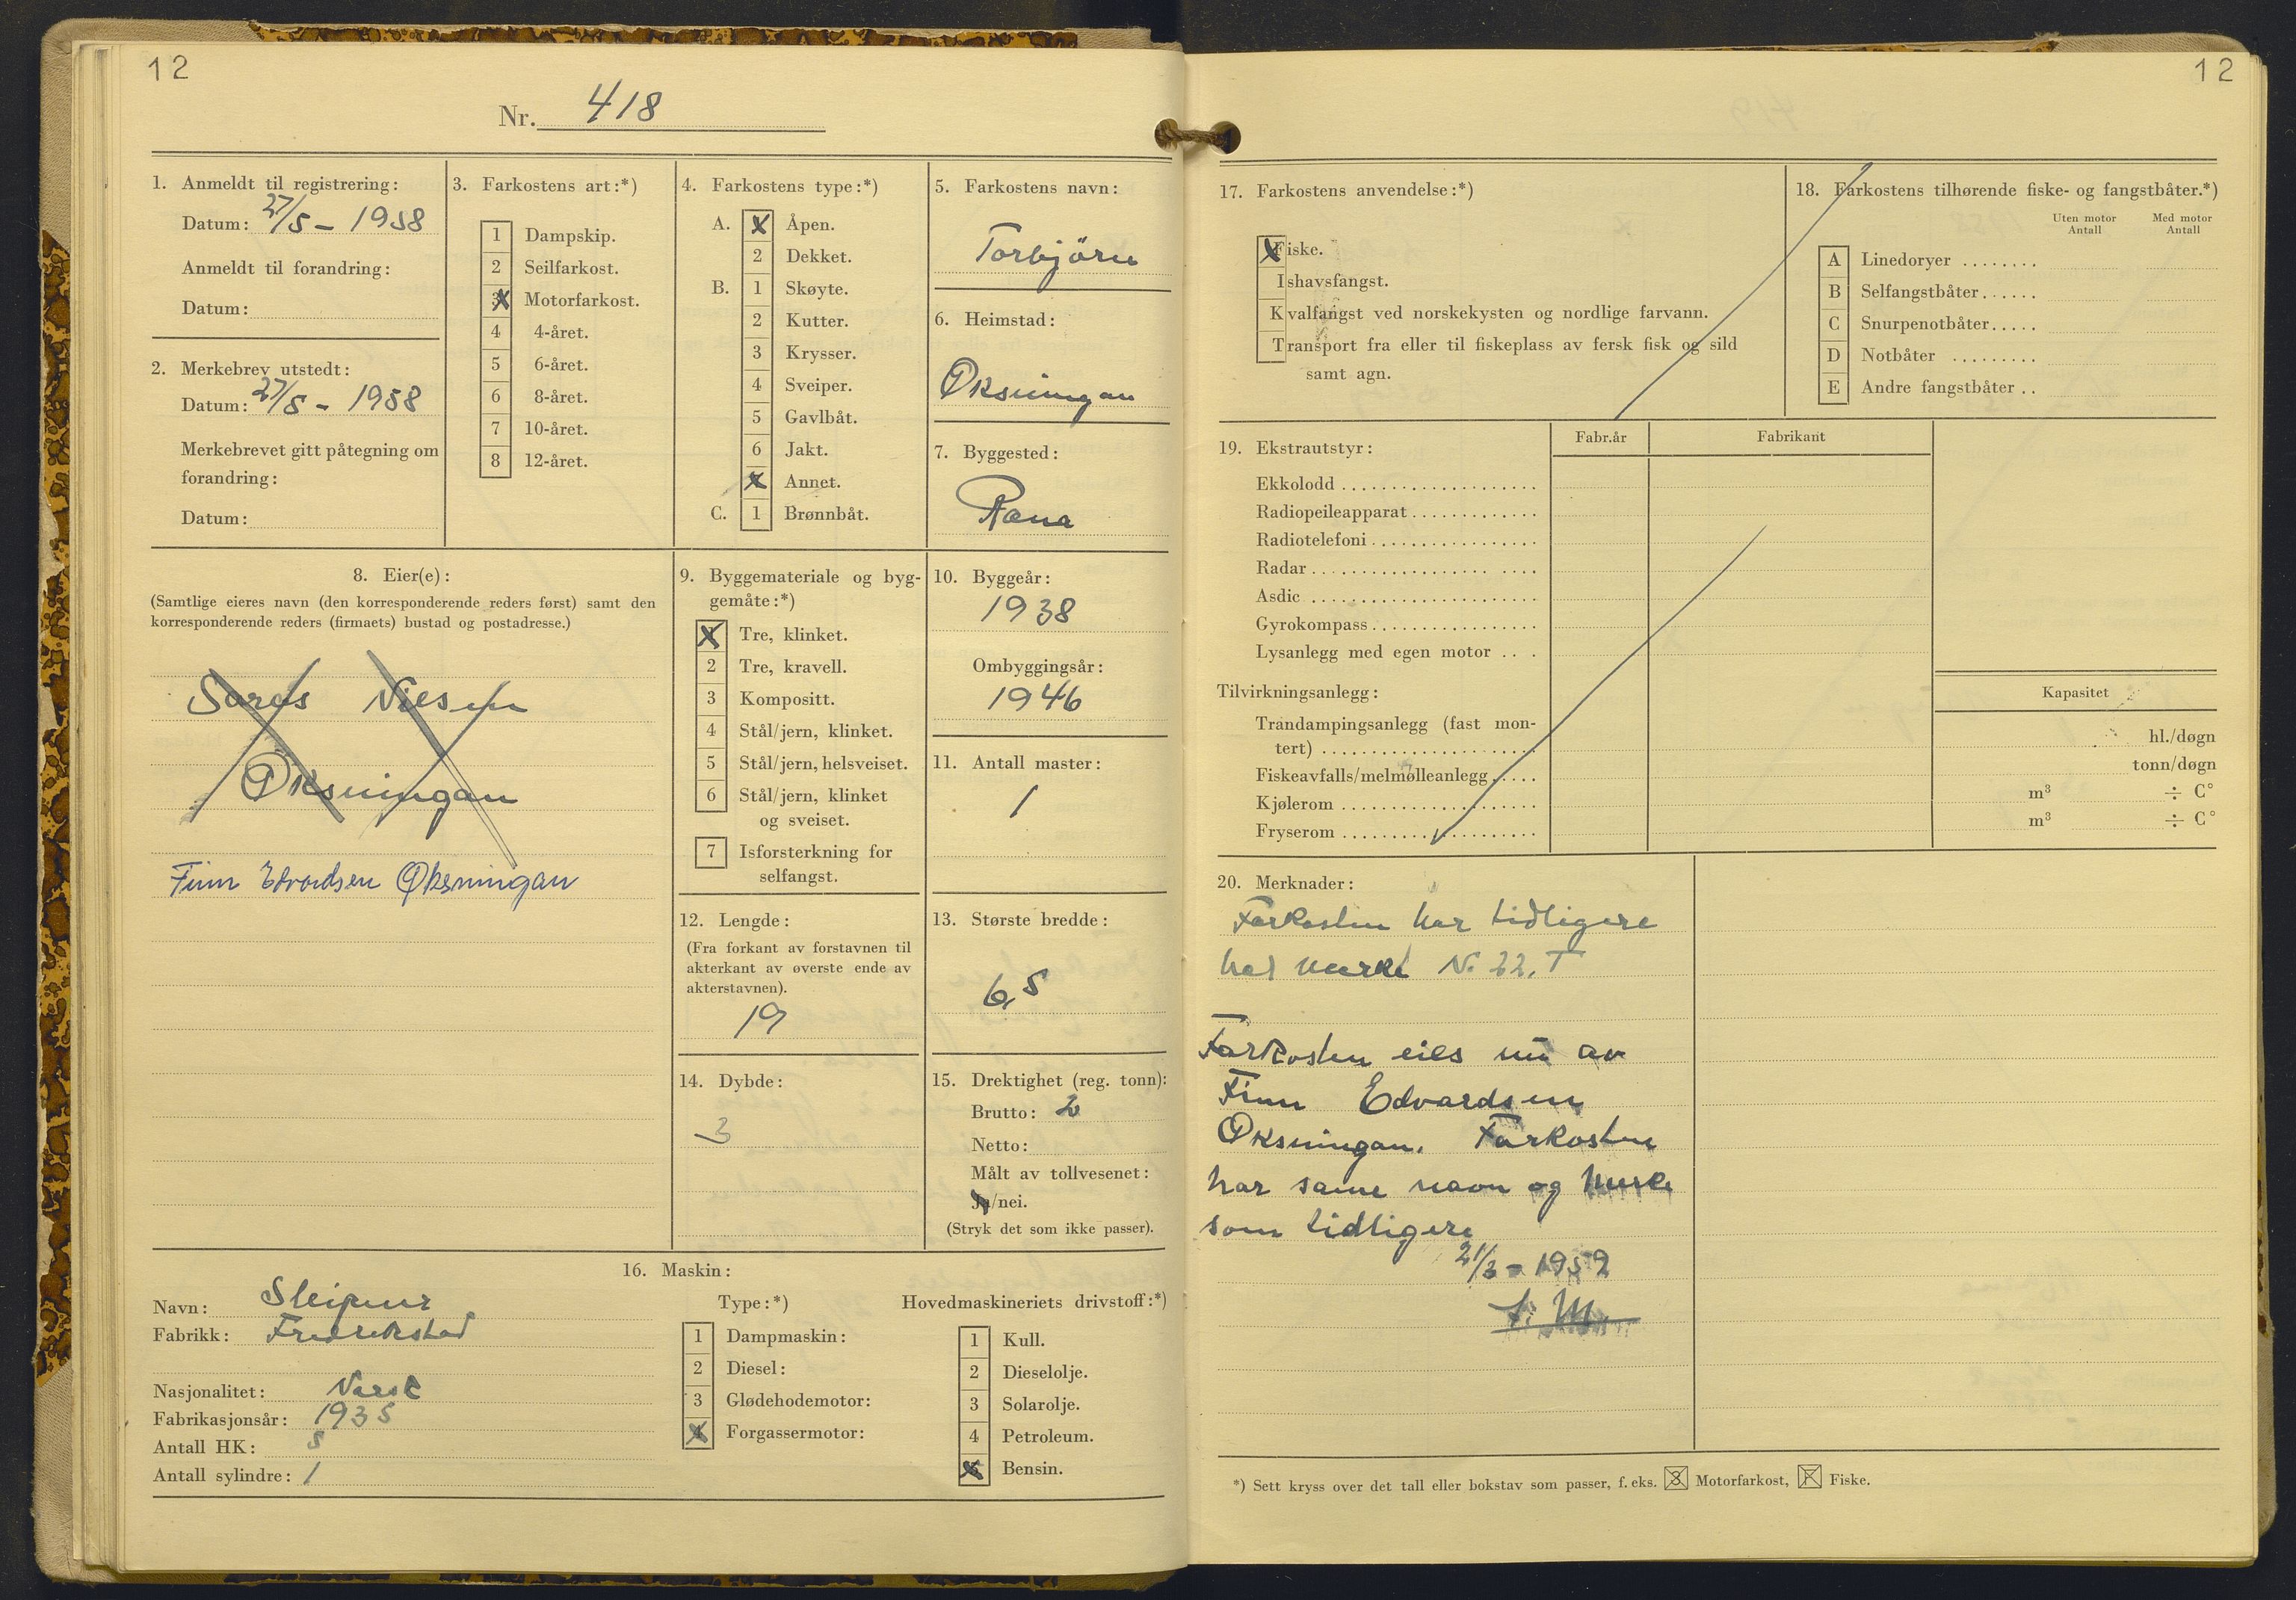 12
Nr. 418
1. Anmeldt til registrering:
Datum: 27/5 - 1958
Anmeldt til forandring:
Datum:
2. Merkebrev utstedt:
Datum: 27/5 - 1958
Merkebrevet gitt påtegning om
forandring:
Datum:
3. Farkostens art:*)
1 Dampskip.
2 Seilfarkost.
3 Motorfarkost.
4 4-året.
5 6-året.
6 8-året.
7 10-året.
8 12-året.
4. Farkostens type:*)
A. X Åpen.
2 Dekket.
B. 1 Skøyte.
2 Kutter.
3 Krysser.
4 Sveiper.
5 Gavlbåt.
6 Jakt.
X Annet.
C. 1 Brønnbåt.
5. Farkostens navn:
Torbjörn
6. Heimstad:
Øksningan
7. Byggested:
Rana
8. Eier(e):
(Samtlige eieres navn (den korresponderende reders først) samt den
korresponderende reders (firmaets) bustad og postadresse.)
Nilsen
Øksningan
Finn Edvardsen Øksningan
9. Byggemateriale og byg-
gemåte:*)
X Tre, klinket.
2 Tre, kravell.
3 Kompositt.
4 Stål/jern, klinket.
5 Stål/jern, helsveiset.
6 Stål/jern, klinket
og sveiset.
7 Isforsterkning for
selfangst.
10. Byggeår:
1938
Ombyggingsår:
1946
11. Antall master:
1
12. Lengde:
(Fra forkant av forstavnen til
akterkant av øverste ende av
akterstavnen).
19
13. Største bredde:
6,5
14. Dybde:
3
15. Drektighet (reg. tonn):
Brutto: 2
Netto:
Målt av tollvesenet:
Ja/nei.
(Stryk det som ikke passer).
16. Maskin:
Navn: Sleipner
Fabrikk: Fredrikstad
Nasjonalitet: Norsk
Fabrikasjonsår: 1935
Antall HK: 5
Antall sylindre: 1
Type:*)
1 Dampmaskin:
2 Diesel:
3 Glødehodemotor:
X Forgassermotor:
Hovedmaskineriets drivstoff:*)
1 Kull.
2 Dieselolje.
3 Solarolje.
4 Petroleum.
X Bensin.
12
17. Farkostens anvendelse:*)
Fiske.
Ishavsfangst.
Kvalfangst ved norskekysten og nordlige farvann.
Transport fra eller til fiskeplass av fersk fisk og sild
samt agn.
18. Farkostens tilhørende fiske- og fangstbåter.*)
Uten motor Antall
Med motor Antall
A Linedoryer ........
B Selfangstbåter......
C Snurpenotbåter.....
D Notbåter .........
E Andre fangstbåter ..
19. Ekstrautstyr:
Fabr.år
Fabrikant
Ekkolodd
Radiopeileapparat
Radiotelefoni
Radar
Asdic
Gyrokompass
Lysanlegg med egen motor
Tilvirkningsanlegg:
Kapasitet
Trandampingsanlegg (fast mon-
tert) hl./døgn
Fiskeavfalls/melmølleanlegg tonn/døgn
Kjølerom m³ ÷ C°
Fryserom m³ ÷ C°
20. Merknader:
Farkosten har tidligere
hat merke N. 22. T
Farkosten eies nu av
Finn Edvardsen
Øksningan. Farkosten
har same navn og merke
som tidligere
21/3 - 1959
*) Sett kryss over det tall eller bokstav som passer, f. eks. 3 Motorfarkost, F Fiske.